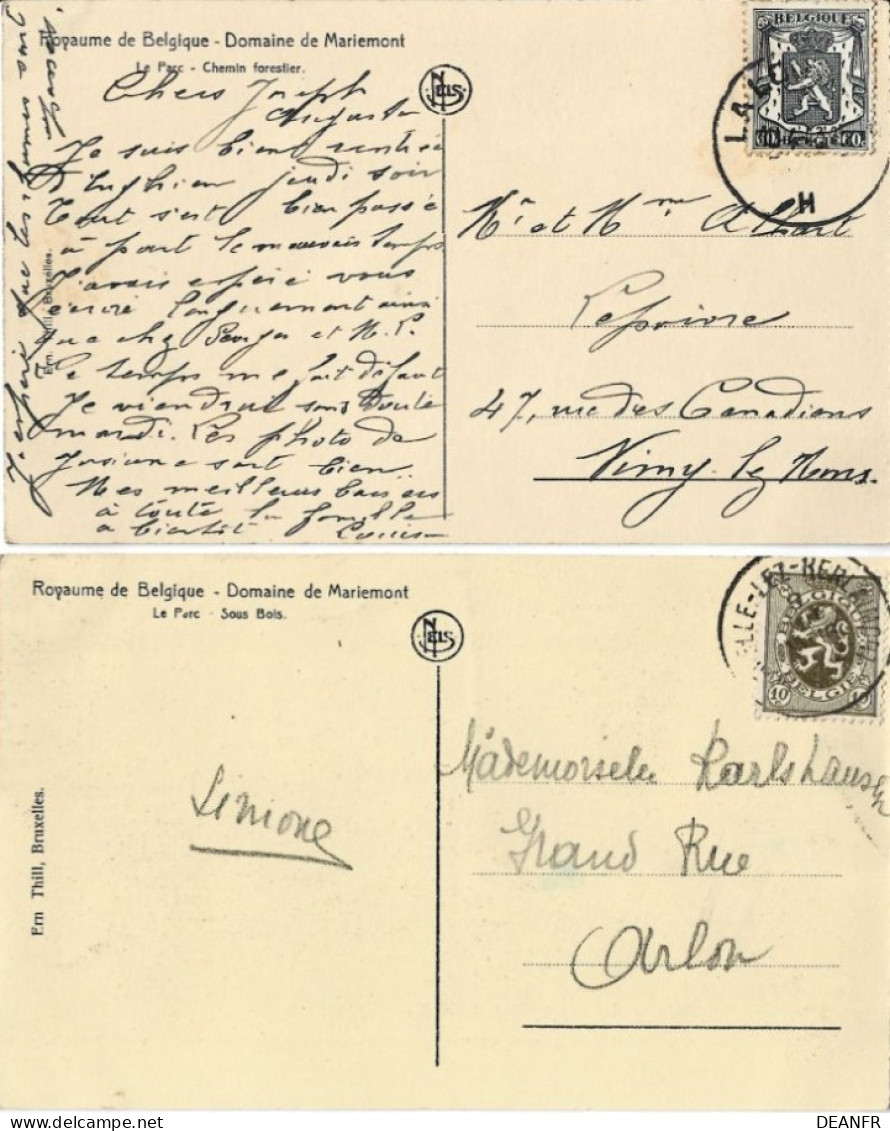 Royaume de Belgique - Domaine de Mariemont
Le Parc - Chemin forestier.
NELS
BELGIQUE
LA LO
H
Chers Joseph
Auguste
Je suis bient rentrée
d'Enghien jeudi soir
Tout s'est bien passée
à part le mauvais temps
J'avais espéré vous
écrire longuement ainsi
que chez Georges et M. L.
Le temps me fait défaut
Je viendrai sans doute
mardi. Les photo de
Josiane sont bien
Mes meilleurs baisers
à toute la famille
a bientôt
J'espère que les
Ern. Thill, Bruxelles.
Mr et Mme Albert
Lepoivre
47, rue des Canadiens
Nimy lez Mons.
Royaume de Belgique - Domaine de Mariemont
Le Parc - Sous Bois.
NELS
ELLE-LEZ-HERLAIMONT
BELGIQUE
BELGIE
10 10
Ern Thill, Bruxelles.
Simone
Mademoiselle
Grand Rue
Arlon
DEANFR